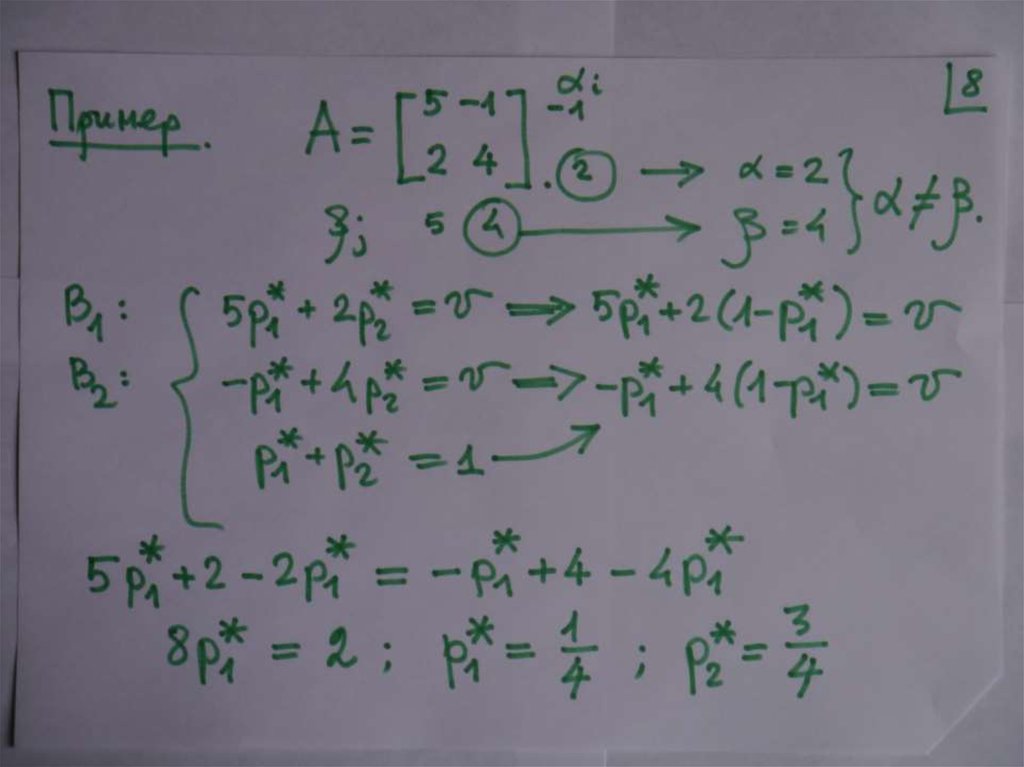 8
Пример. A = [5 -1] αi -1
[2 4]. 2 → α = 2
βj 5 4 → β = 4 } α ≠ β.
B1: 5p1* + 2p2* = v ⇒ 5p1* + 2(1-p1*) = v
B2: -p1* + 4p2* = v ⇒ -p1* + 4(1-p1*) = v
p1* + p2* = 1
5p1* + 2 - 2p1* = -p1* + 4 - 4p1*
8p1* = 2 ; p1* = 1/4 ; p2* = 3/4